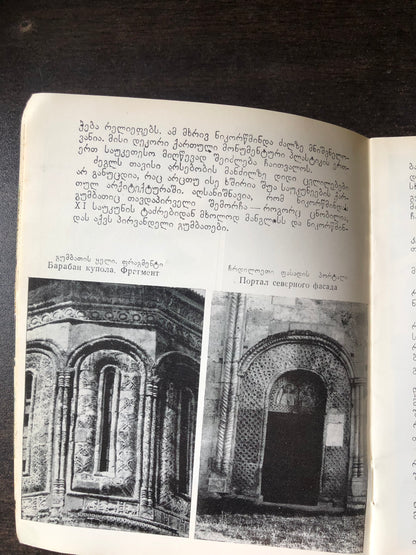 ქება რელიეფებს. ამ მხრივ ნიკორწმინდა ძალზე მნიშვნელო-
ვანია. მისი დეკორი ქართული მონუმენტური პლასტიკის ერთ-
ერთ საუკეთესო მიღწევად შეიძლება ჩაითვალოს.
ძეგლს თავისი არსებობის მანძილზე დიდი ცვლილებები
არ განუცდია, რაც არცთუ ისე ხშირია შუა საუკუნეების ქარ-
თულ არქიტექტურაში. აღსანიშნავია, რომ ნიკორწმინდას
გუმბათიც თავდაპირველი შემორჩა — როგორც ცნობილია,
XI საუკუნის ტაძრებიდან მხოლოდ მანგლისს და ნიკორწმინ-
დას აქვს პირვანდელი გუმბათები.
გუმბათის ყელი. ფრაგმენტი
Барабан купола. Фрегмент
ჩრდილოეთი ფასადის პორტალი
Портал северного фасада